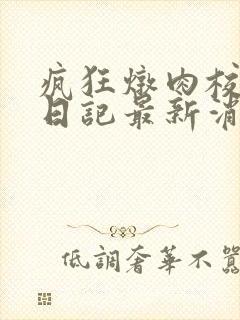 疯狂燉肉校
日記最新消
低調奢華不囂